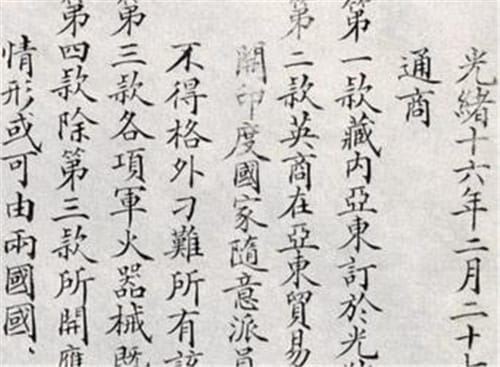 光緒十六年二月二十七
通商
第一款藏內亞東訂於光緒
第二款英商在亞東貿易
開印度國家隨意派員
不得格外刁難所有該
第三款各項軍火器械既
第四款除第三款所開應
情形或可由兩國國、